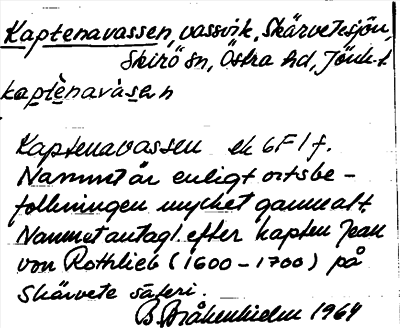 Kaptenavassen, vassvik, Skärvetesjön,
Skirö sn, Östra hd, Jönk. l
kaptènavàsen
Kaptenavassen ek 6F1f.
Namnet är enligt ortsbe-
folkningen mycket gammalt.
Namnet antagl. efter kapten Jean
von Rothlieb (1600-1700) på
Skärvete säteri.
B. Bråkenhielm 1964